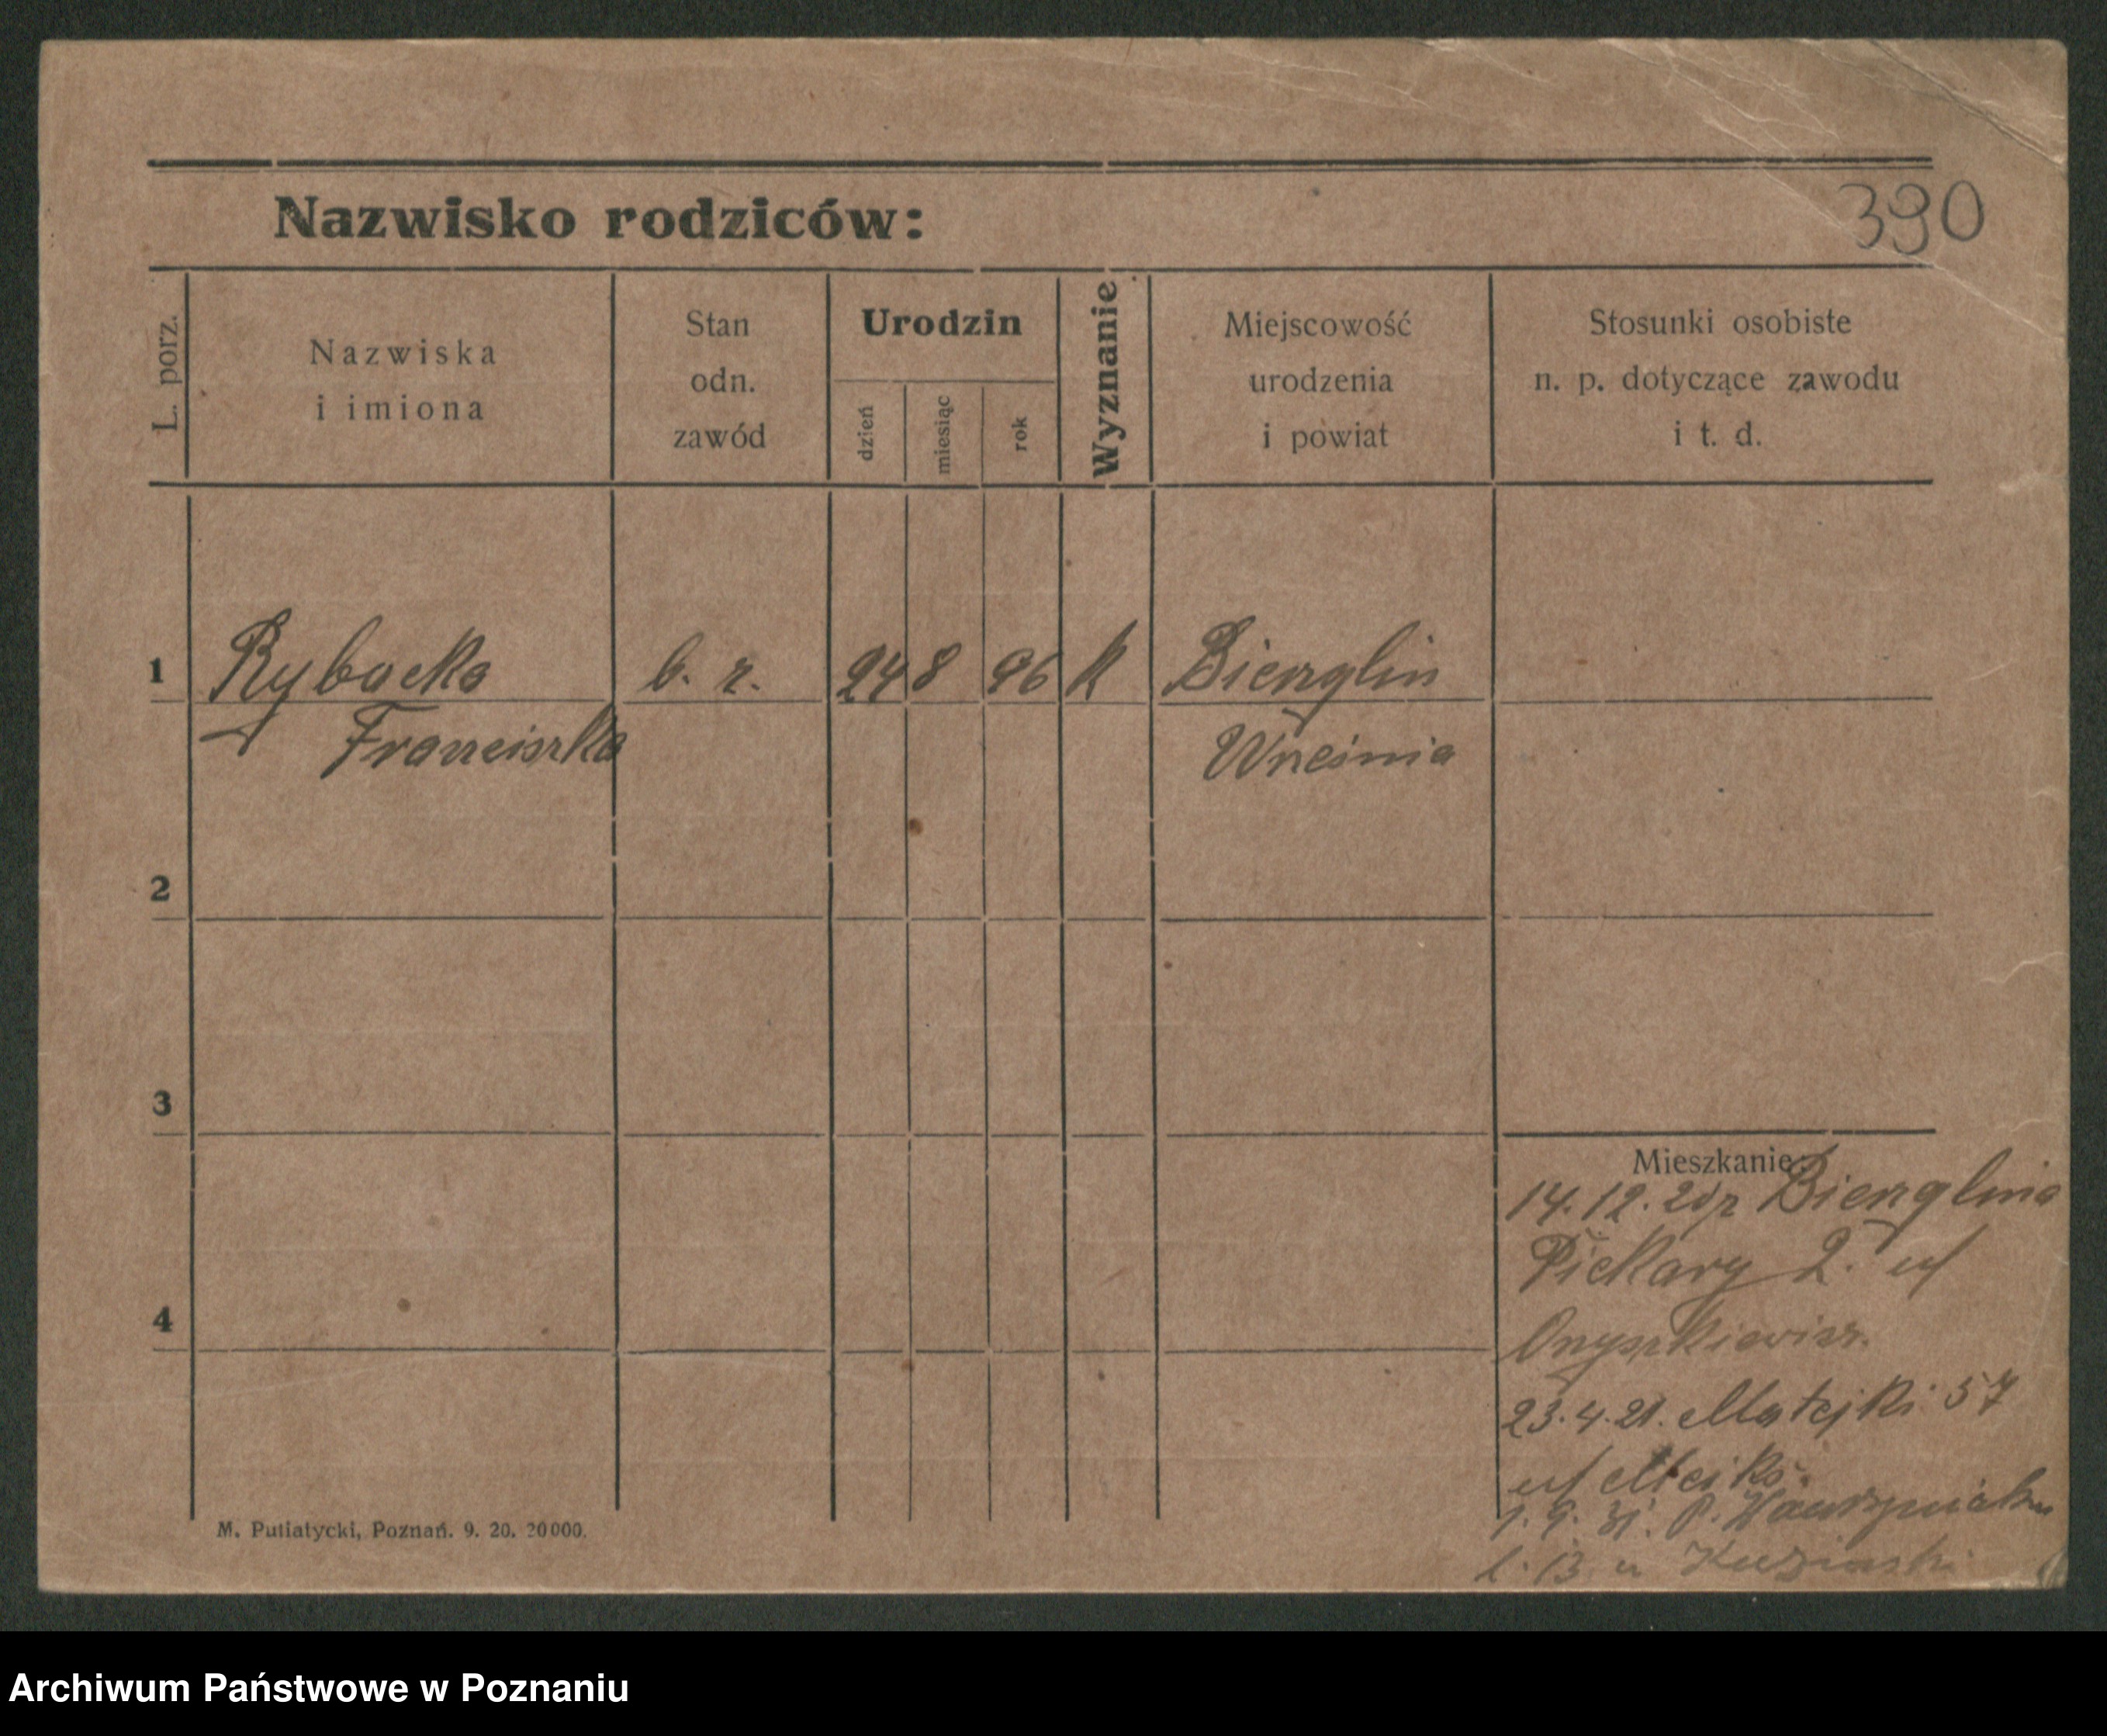 390
Nazwisko rodziców:
L. porz.
Nazwiska
i imiona
Stan
odn.
zawód
Urodzin
dzień
miesiąc
rok
Wyznanie
Miejscowość
urodzenia
i powiat
Stosunki osobiste
n. p. dotyczące zawodu
i t. d.
1 Rybacka b. z. 24 8 96 K Bienglin
Franciszka Wrcśnia
2
3
4
Mieszkanie:
14. 12. 20 z Bienglina
Piekary 2.
Onyszkiewicz.
23. 4. 21. Matejki 57
1. 9. 31. P. Wawrzyniaka
M. Putiatycki, Poznań. 9. 20. 20000.
Archiwum Państwowe w Poznaniu